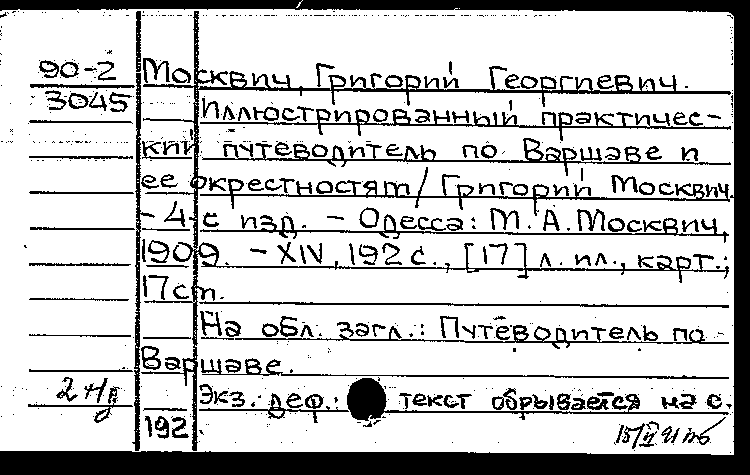 90-2 Москвич, Григорий Георгиевич.
3045 Иллюстрированный практичес-
кий путеводитель по Варшаве и
ее окрестностям / Григорий Москвич.
- 4-е изд. - Одесса: М.А.Москвич,
1909. - XIV, 192 с., [17] л. ил., карт.;
17см.
На обл. загл.: Путеводитель по
Варшаве.
Экз. деф.: текст обрывается на с.
192